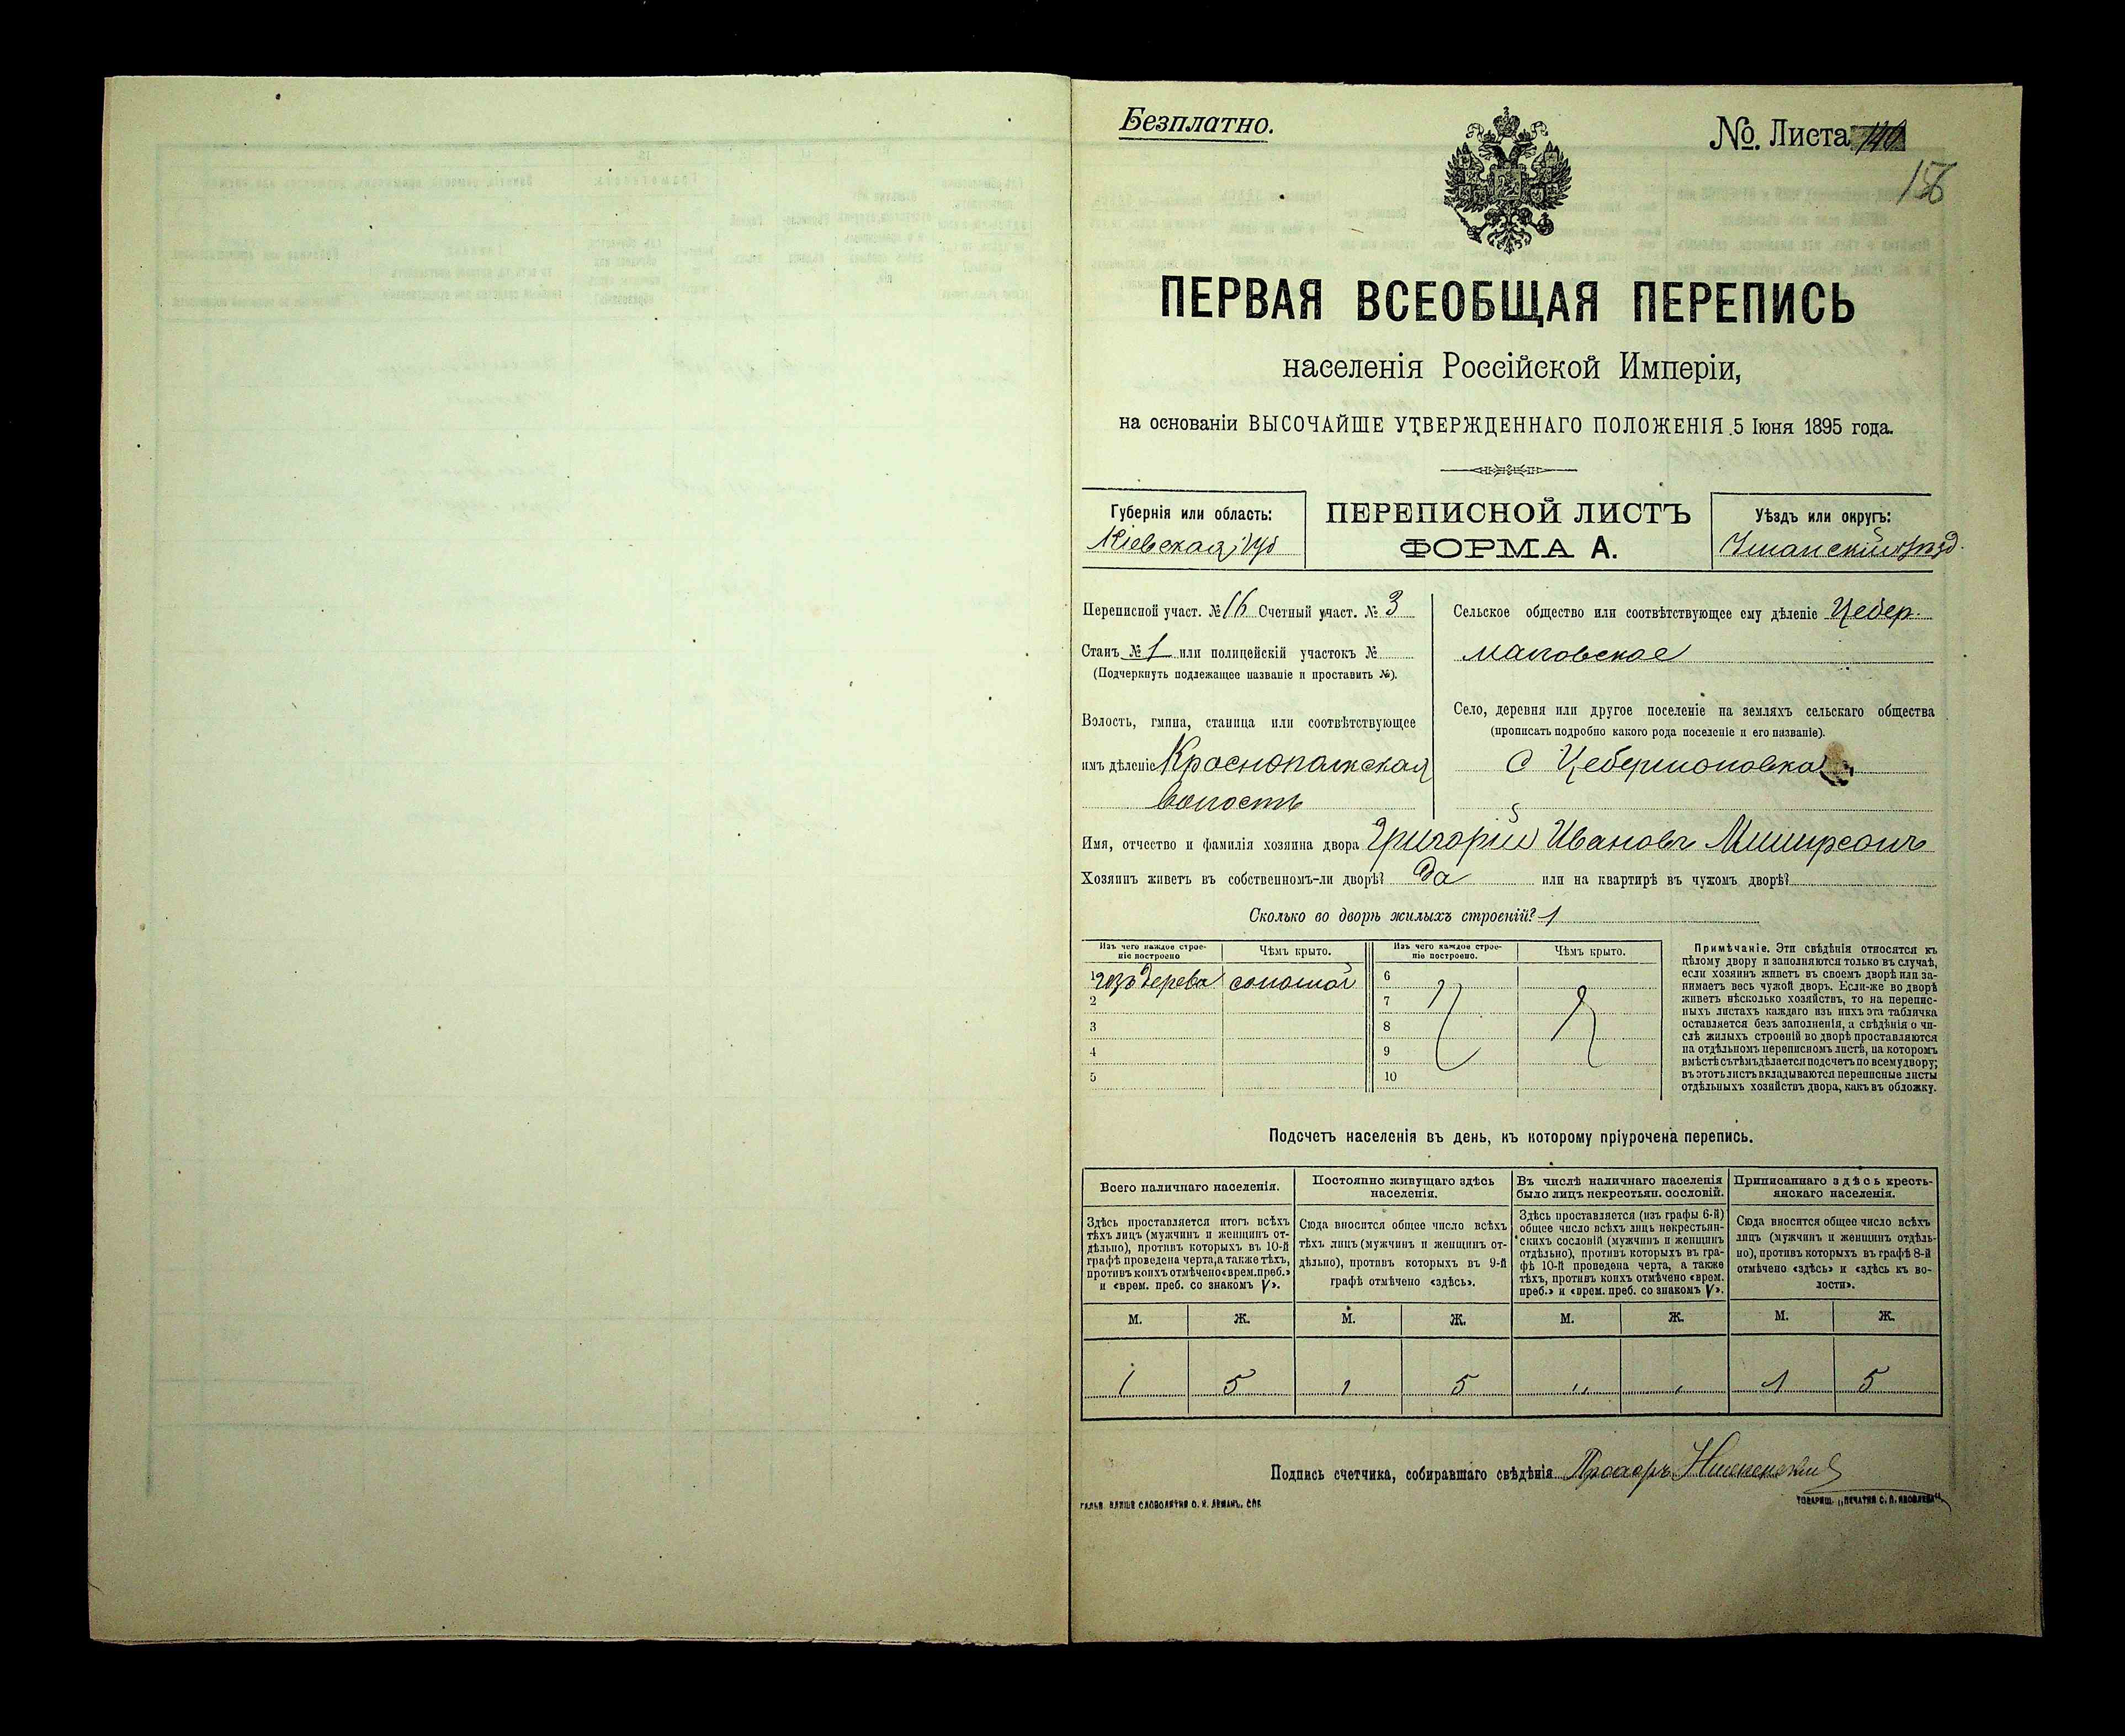 Безплатно.
№ Листа 140
156
ПЕРВАЯ ВСЕОБЩАЯ ПЕРЕПИСЬ
населенія Россійской Имперіи,
на основаніи ВЫСОЧАЙШЕ УТВЕРЖДЕННАГО ПОЛОЖЕНІЯ 5 Іюня 1895 года.
Губернія или область:
Кіевская губ
ПЕРЕПИСНОЙ ЛИСТЪ
ФОРМА А.
Уѣздъ или округъ:
Уманскій уѣзд.
Переписной участ. № 16 Счетный участ. № 3
Станъ № 1 или полицейскій участокъ №
(Подчеркнуть подлежащее названіе и проставить №).
Волость, гмина, станица или соотвѣтствующее
имъ дѣленіе Краснополкская
волость
Сельское общество или соотвѣтствующее ему дѣленіе Цебер-
мановское
Село, деревня или другое поселеніе на земляхъ сельскаго общества
(прописать подробно какого рода поселеніе и его названіе).
С Цебермоновка
Имя, отчество и фамилія хозяина двора Григорій Ивановъ
Хозяинъ живетъ въ собственномъ-ли дворѣ? Да или на квартирѣ въ чужомъ дворѣ?
Сколько во дворѣ жилыхъ строеній? 1
Изъ чего каждое строе-
ніе построено
Чѣмъ крыто.
Изъ чего каждое строе-
ніе построено.
Чѣмъ крыто.
1 изъ дерева соломой
2
3
4
5
6
7
8
9
10
Примѣчаніе. Эти свѣдѣнія относятся къ
цѣлому двору и заполняются только въ случаѣ,
если хозяинъ живетъ въ своемъ дворѣ или за-
нимаетъ весь чужой дворъ. Если-же во дворѣ
живетъ нѣсколько хозяйствъ, то на перепис-
ныхъ листахъ каждаго изъ нихъ эта табличка
оставляется безъ заполненія, а свѣдѣнія о чи-
слѣ жилыхъ строеній во дворѣ проставляются
на отдѣльномъ переписномъ листѣ, на которомъ
вмѣстѣ съ тѣмъ дѣлается подсчетъ по всему двору;
въ этотъ листъ вкладываются переписные листы
отдѣльныхъ хозяйствъ двора, какъ въ обложку.
Подсчетъ населенія въ день, къ которому пріурочена перепись.
Всего наличнаго населенія.
Здѣсь проставляется итогъ всѣхъ
тѣхъ лицъ (мужчинъ и женщинъ от-
дѣльно), противъ которыхъ въ 10-й
графѣ проведена черта, а также тѣхъ,
противъ коихъ отмѣчено «врем. преб.»
и «врем. преб. со знакомъ V».
Постоянно живущаго здѣсь
населенія.
Сюда вносится общее число всѣхъ
тѣхъ лицъ (мужчинъ и женщинъ от-
дѣльно), противъ которыхъ въ 9-й
графѣ отмѣчено «здѣсь».
Въ числѣ наличнаго населенія
было лицъ некрестьян. сословій.
Здѣсь проставляется (изъ графы 6-й)
общее число всѣхъ лицъ некрестьян-
скихъ сословій (мужчинъ и женщинъ
отдѣльно), противъ которыхъ въ гра-
фѣ 10-й проведена черта, а также
тѣхъ, противъ коихъ отмѣчено «врем.
преб.» и «врем. преб. со знакомъ V».
Приписаннаго здѣсь кресть-
янскаго населенія.
Сюда вносится общее число всѣхъ
лицъ (мужчинъ и женщинъ отдѣль-
но), противъ которыхъ въ графѣ 8-й
отмѣчено «здѣсь» и «здѣсь къ во-
лости».
М. Ж. М. Ж. М. Ж. М. Ж.
1 5 1 5 " " 1 5
Подпись счетчика, собиравшаго свѣдѣнія Прохоръ
ГАЛЬВ. КЛИШЕ СЛОВОЛИТНИ О. И. ЛЕМАНЪ, СПБ.
ТОВАРИЩ. „ПЕЧАТНЯ С. П. ЯКОВЛЕВА“.